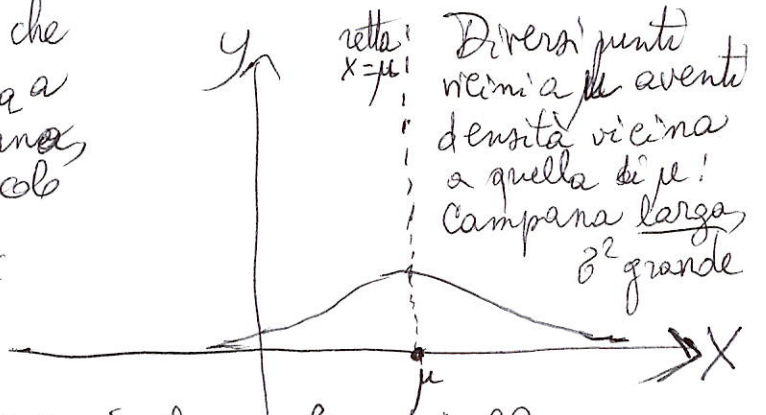 che
a a
colo
Y
retta
x=μ
Diversi punti
vicini a μ aventi
densità vicina
a quella di μ:
Campana larga,
σ² grande
X
μ